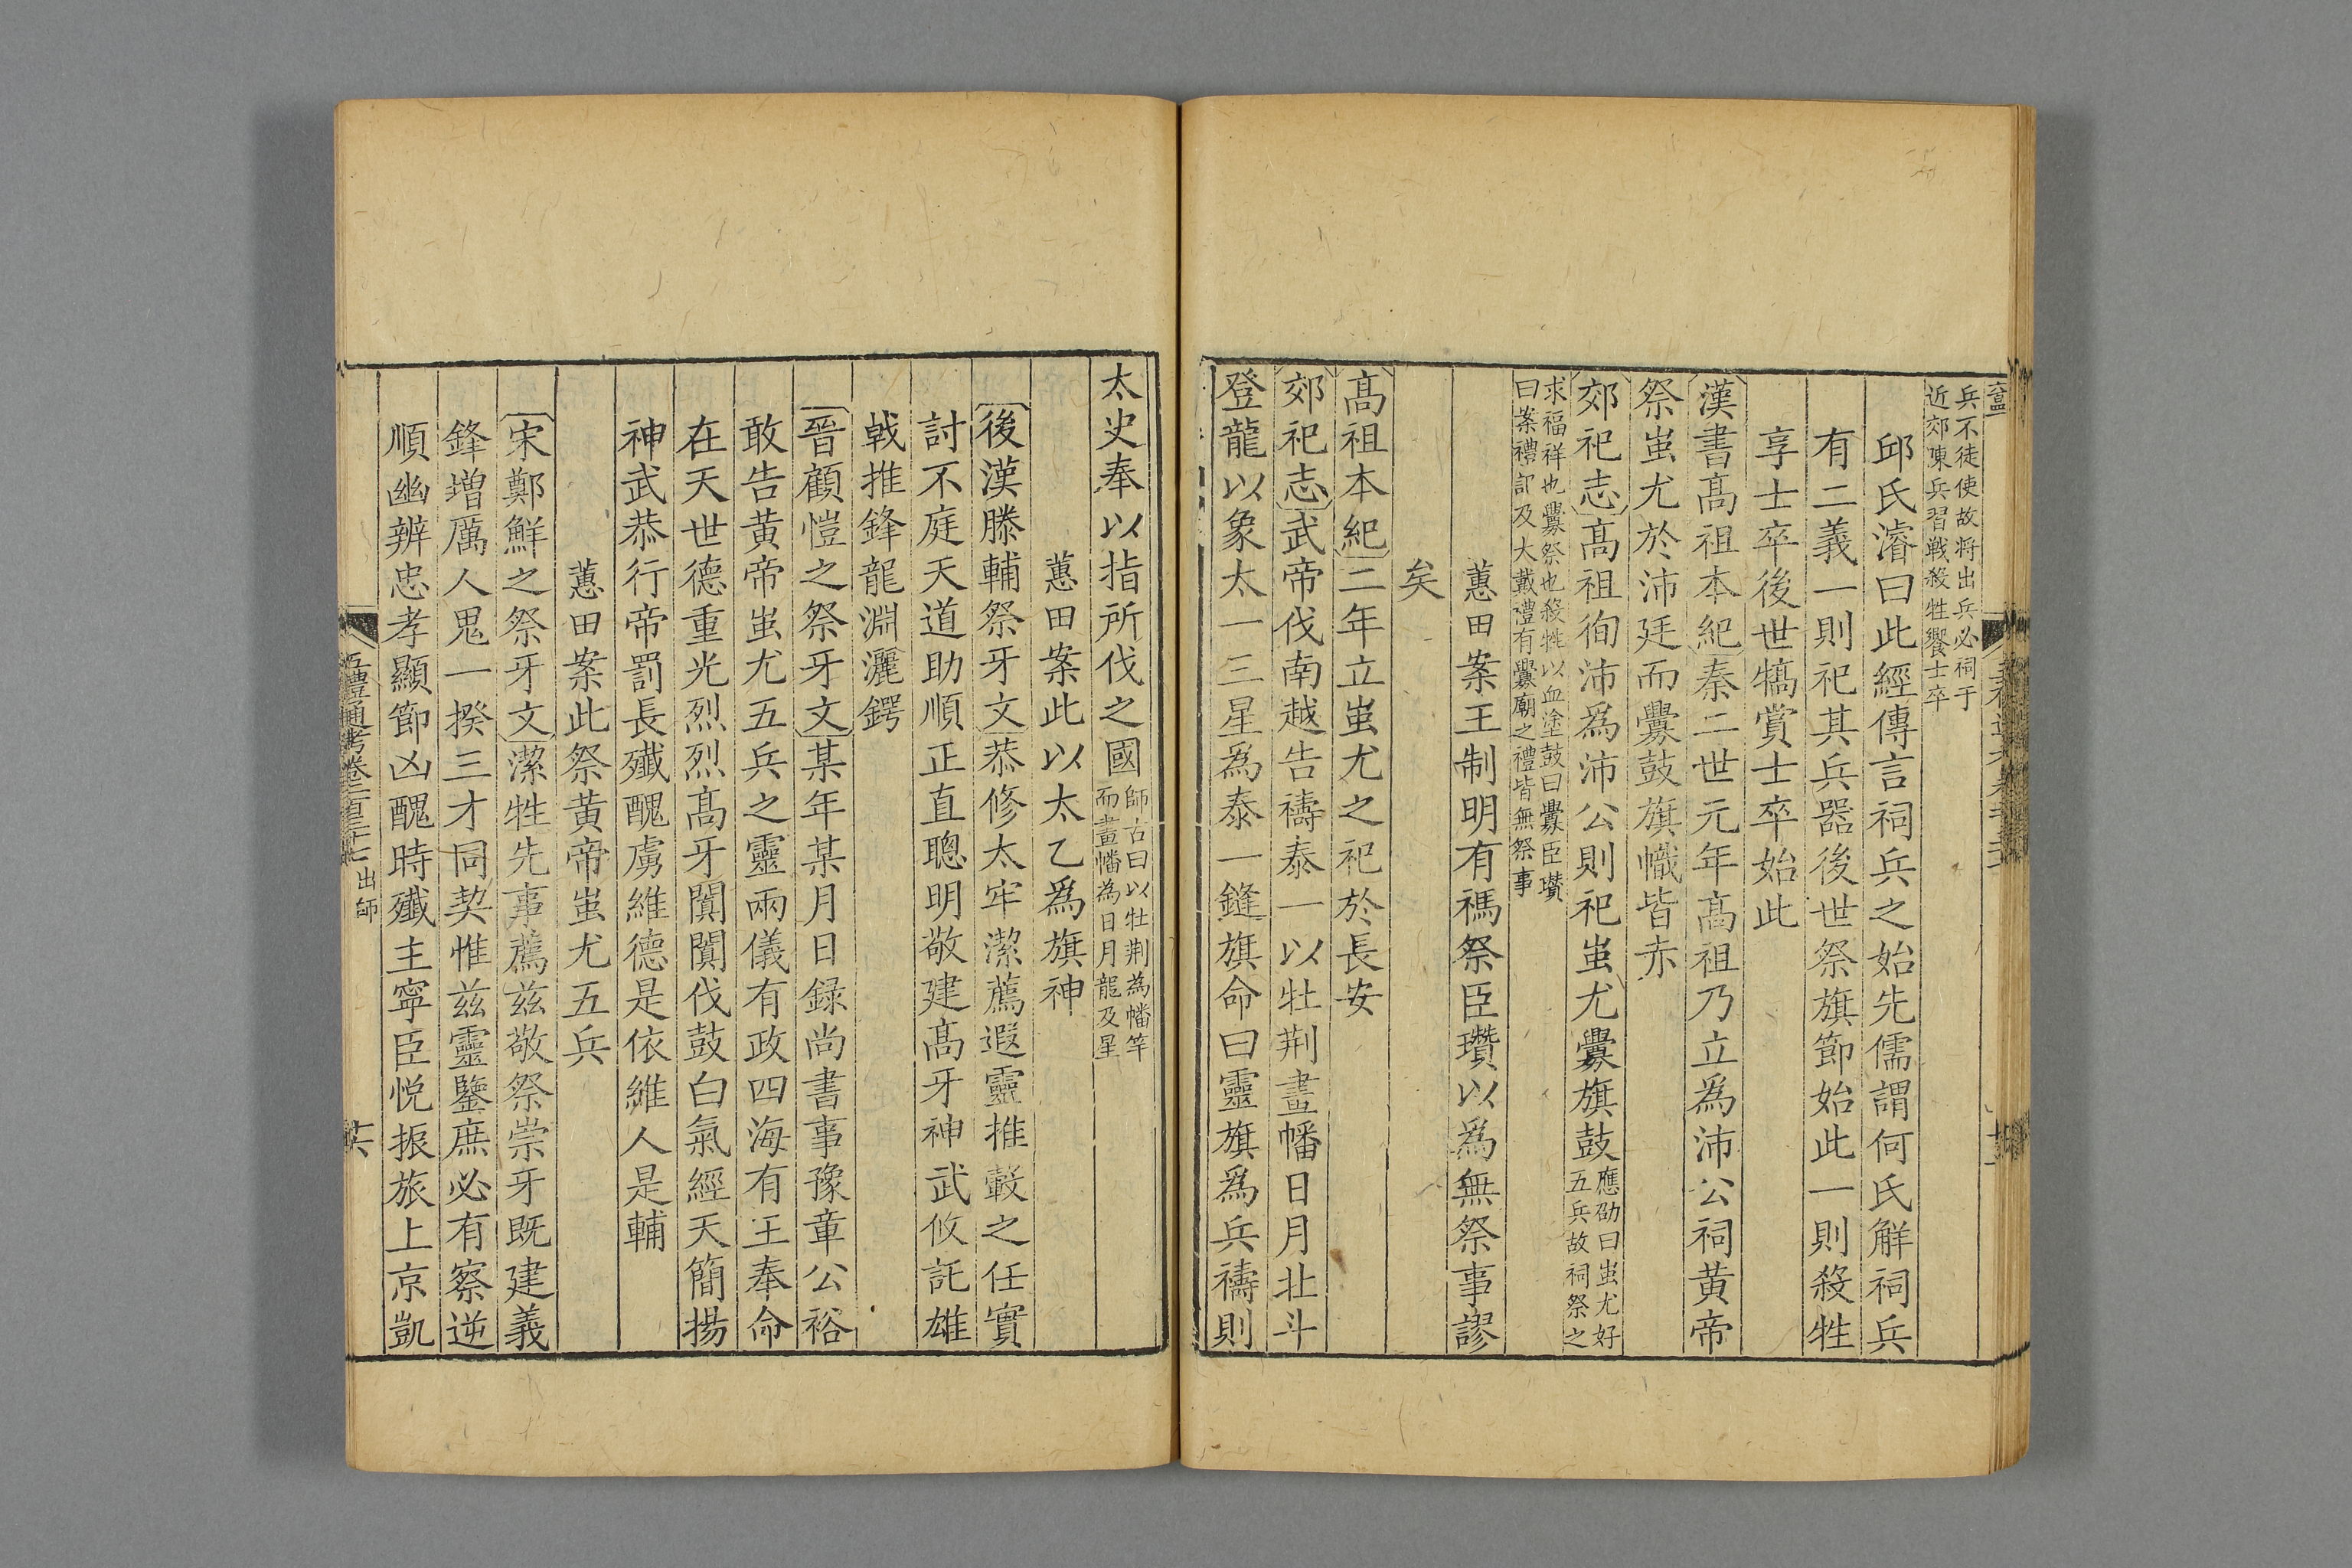 兵不徒使故将出兵必祠于
近郊陳兵習戰殺牲饗士卒
邱氏濬曰此經傳言祠兵之始先儒謂何氏解祠兵
有二義一則祀其兵器後世祭旗節始此一則殺牲
享士卒後世犒賞士卒始此
漢書髙祖本紀秦二世元年髙祖乃立爲沛公祠黄帝
祭蚩尤於沛廷而釁鼓旗幟皆赤
郊祀志髙祖徇沛爲沛公則祀蚩尤釁旗鼓應劭曰蚩尤好
五兵故祠祭之
求福祥也釁祭也殺牲以血塗鼓曰釁臣瓚
曰案禮記及大戴禮有釁廟之禮皆無祭事
蕙田案王制明有禡祭臣瓚以爲無祭事謬
矣
髙祖本紀二年立蚩尤之祀於長安
郊祀志武帝伐南越告禱泰一以牡荆畫幡日月北斗
登龍以象太一三星爲泰一鋒旗命曰靈旗爲兵禱則
太史奉以指所伐之國師古曰以牡荆為幡竿
而畫幡為日月龍及星
蕙田案此以太乙爲旗神
後漢滕輔祭牙文恭修太牢潔薦遐靈推轂之任實
討不庭天道助順正直聰明敬建髙牙神武攸託雄
戟推鋒龍淵灑鍔
晉顧愷之祭牙文某年某月日録尚書事豫章公裕
敢告黄帝蚩尤五兵之靈兩儀有政四海有王奉命
在天世德重光烈烈髙牙闐闐伐鼓白氣經天簡揚
神武恭行帝罰長殲醜虜維德是依維人是輔
蕙田案此祭黄帝蚩尤五兵
宋鄭鮮之祭牙文潔牲先事薦兹敬祭崇牙既建義
鋒增厲人鬼一揆三才同契惟兹靈鑒庶必有察逆
順幽辨忠孝顯節凶醜時殲主寧臣悅振旅上京凱
五禮通考卷二百三十七 出師